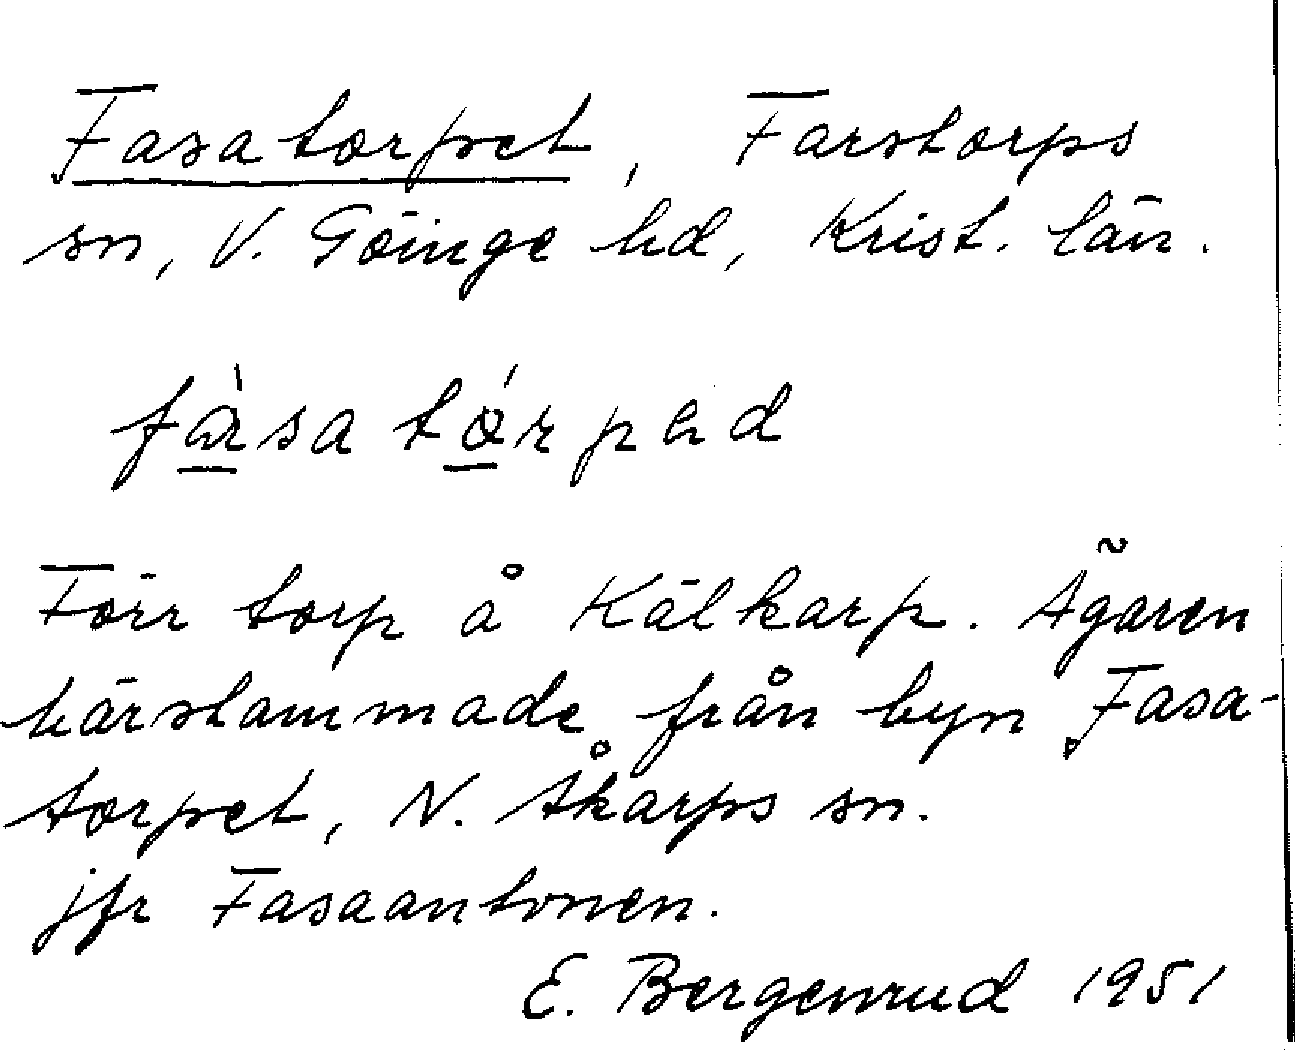 Fasatorpet, Farstorps
sn, V. Göinge hd, Krist. län.
fàsa tórpəd
Förr torp å Kälkarp. Ägaren
härstammade från byn Fasa-
torpet, N. Åkarps sn.
jfr Fasaantonen.
E. Bergenrud 1951